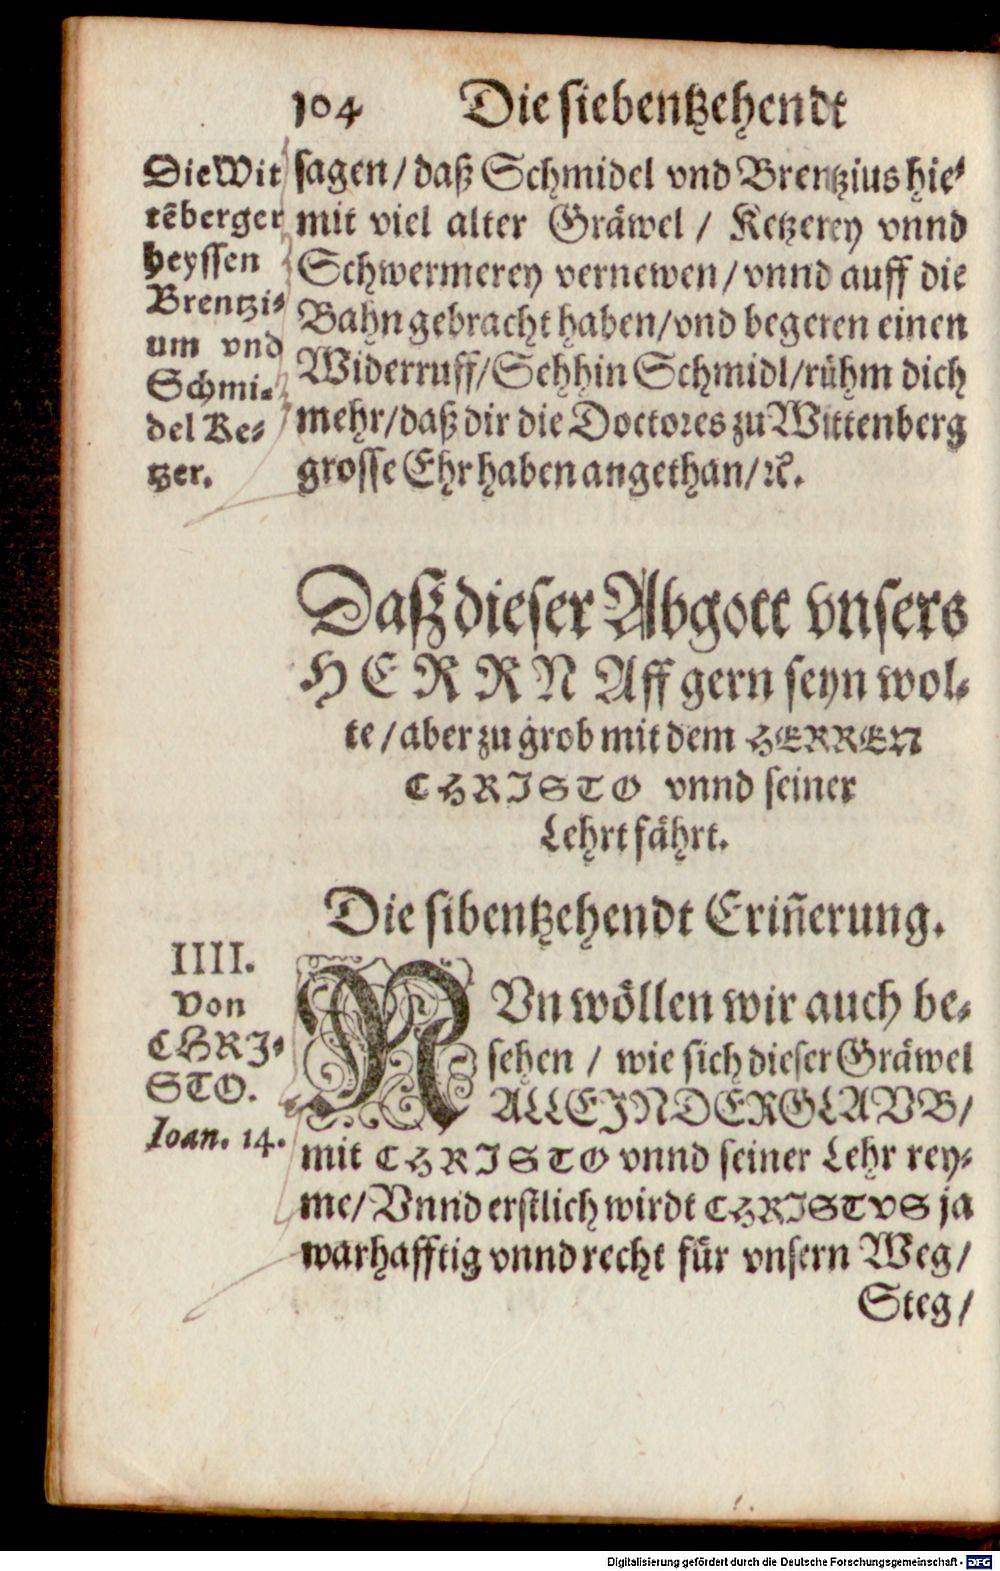 104 Die siebentzehendt
Die Wit
tēberger
heyssen
Brentzi-
um vnd
Schmi-
del Ke-
tzer.
sagen / daß Schmidel vnd Brentzius hie-
mit viel alter Gräwel / Ketzerey vnnd
Schwermerey vernewen / vnnd auff die
Bahn gebracht haben / vnd begeren einen
Widerruff / Seh hin Schmidl / rühm dich
mehr / daß dir die Doctores zu Wittenberg
grosse Ehr haben angethan / ꝛc.
Daß dieser Abgott vnsers
HERRN Aff gern seyn wol-
te / aber zu grob mit dem HERREN
CHRISTO vnnd seiner
Lehrt fährt.
Die sibentzehendt Eriñerung.
IIII.
Von
CHRI-
STO.
Ioan. 14.
NVn wöllen wir auch be-
sehen / wie sich dieser Gräwel
ALLEIN DER GLAVB /
mit CHRISTO vnnd seiner Lehr rey-
me / Vnnd erstlich wirdt CHRISTVS ja
warhafftig vnnd recht für vnsern Weg /
Steg /
Digitalisierung gefördert durch die Deutsche Forschungsgemeinschaft - DFG